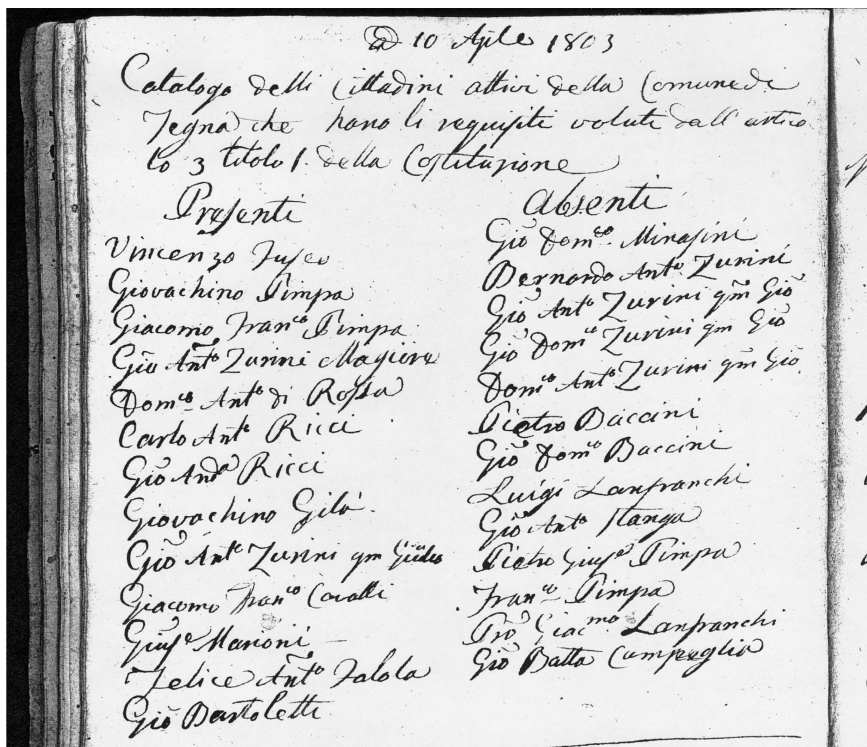 Ad 10 Aple 1803
Catalogo delli Cittadini attivi della Comune di
Tegna che hano li requisiti voluti dall'artico
lo 3 titolo 1. della Costituzione
Presenti
Vincenzo Fuseo
Giovachino Pimpa
Giacomo Franco Pimpa
Gio Anto Zurini Magiore
Domco Anto di Rossa
Carlo Anto Ricci
Gio Anda Ricci
Giovachino Gilà
Gio Anto Zurini qm
Giacomo Franco Cavalli
Giuse Marioni
Felice Anto Zalola
Gio Bartoletti
Absenti
Gio Domco Mirasini
Bernardo Anto Zurini
Gio Anto Zurini qm Gio
Gio Domco Zurini qm Gio
Domco Anto Zurini qm Gio
Pietro Baccini
Gio Domco Baccini
Luigi Lanfranchi
Gio Anto Stanga
Pietro Giuse Pimpa
Franco Pimpa
Pro Giacmo Lanfranchi
Gio Batta Campeglio